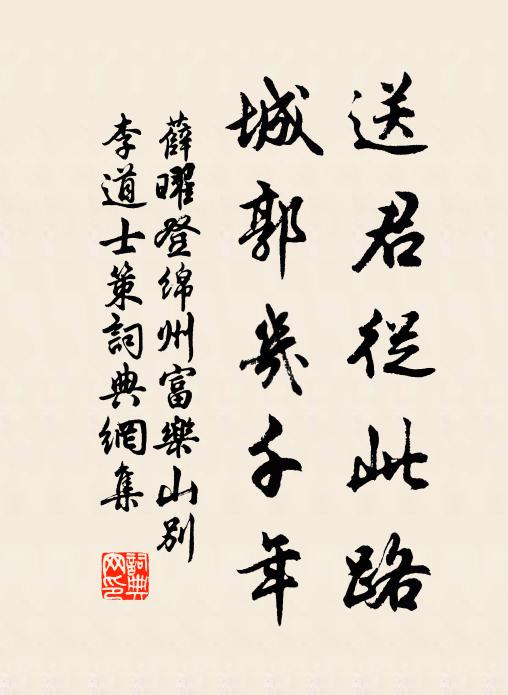 送君從此路
城郭幾千年
薛曜登綿州富樂山別
李道士策詞典網集
詞典
网印